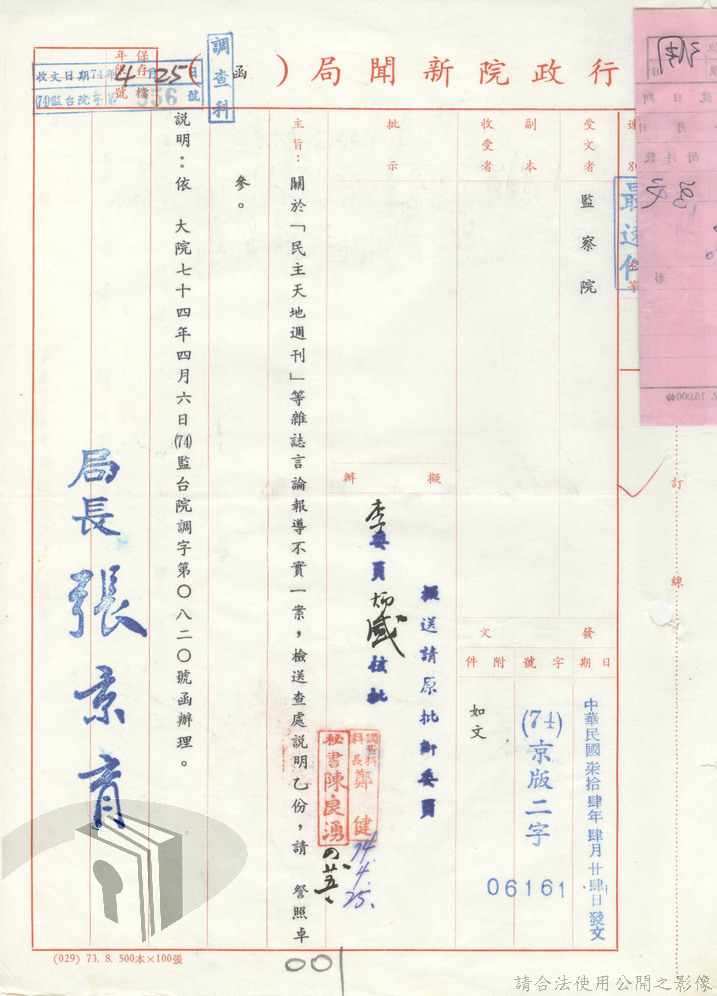 行政院新聞局（函）
調查科
保存年限
檔號
收文日期74年4月25日
(74)監台院字第956號
速別
最速件
受文者
監察院
副本收受者
批示
擬辦
擬送請原批辦委員
李委員炳盛核批
發文
日期
中華民國柒拾肆年肆月廿肆日發文
字號
(74)京版二字
06161
附件
如文
主旨：關於「民主天地週刊」等雜誌言論報導不實一案，檢送查處說明乙份，請　詧照卓
參。
說明：依　大院七十四年四月六日(74)監台院調字第〇八二〇號函辦理。
局長張京育
調查科科長鄭健
74.4.25.
秘書陳良湧
訂線
001
(029) 73. 8. 500本×100張
請合法使用公開之影像